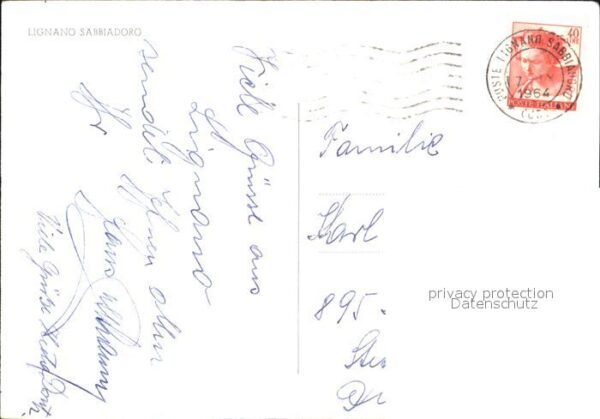 LIGNANO SABBIADORO
Viele Grüsse aus
Lignano
sendet Ihnen allen
Ihr
Hans
Viele Grüsse
40
LIRE
POSTE ITALIANE
POSTE LIGNANO SABBIADORO
1964
Familie
Karl
895-
privacy protection
Datenschutz